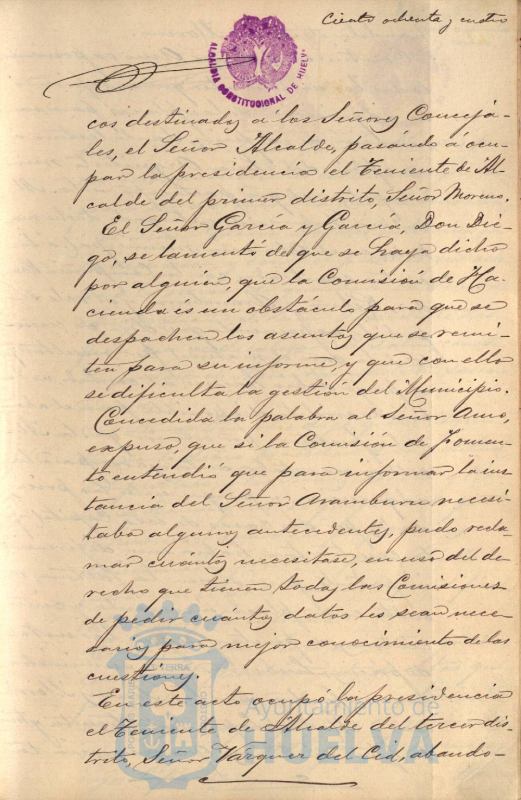 Ciento ochenta y cuatro
ALCALDIA CONSTITUCIONAL DE HUELVA
cos destinados á los Señores Conceja-
les, el Señor Alcalde, pasando á ocu-
par la presidencia el Teniente de Al-
calde del primer distrito, Señor Moreno.
El Señor García y García, Don Die-
go, se lamentó de que se haya dicho
por alguien, que la Comisión de Ha-
cienda és un obstáculo para que se
despachen los asuntos que se remi-
ten para su informe, y que con ello
se dificulta la gestión del Municipio.
Concedida la palabra al Señor Amo,
expuso, que si la Comisión de Fomen-
to entendió que para informar la ins-
tancia del Señor Aramburu necesi-
taba algunos antecedentes, pudo recla-
mar cuántos necesitase, en uso del de-
recho que tienen todas las Comisiones
de pedir cuántos datos les sean nece-
sarios para mejor conocimiento de las
cuestiones.
En este acto ocupó la presidencia
el Teniente de Alcalde del tercer dis-
trito, Señor Vázquez del Cid, abando-
Ayuntamiento de
HUELVA